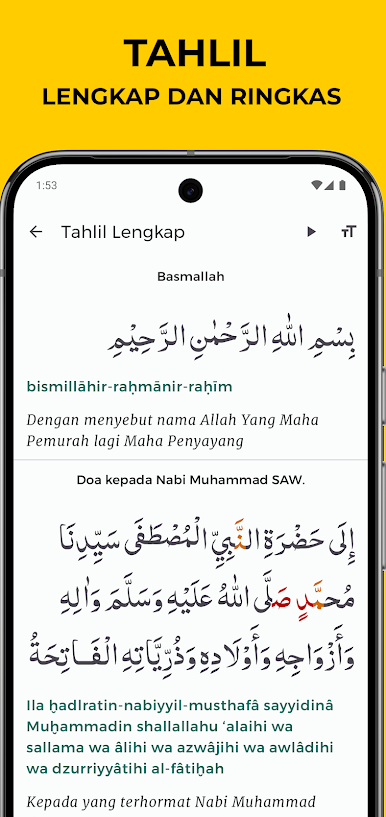 TAHLIL
LENGKAP DAN RINGKAS
1:53
Tahlil Lengkap
Basmallah
بِسْمِ اللهِ الرَّحْمٰنِ الرَّحِيْمِ
bismillāhir-raḥmānir-raḥīm
Dengan menyebut nama Allah Yang Maha
Pemurah lagi Maha Penyayang
Doa kepada Nabi Muhammad SAW.
إِلَى حَضْرَةِ النَّبِيِّ الْمُصْطَفَى سَيِّدِنَا
مُحَمَّدٍ صَلَّى اللهُ عَلَيْهِ وَسَلَّمَ وَاٰلِهِ
وَأَزْوَاجِهِ وَأَوْلَادِهِ وَذُرِّيَّاتِهِ الْفَـاتِحَةُ
Ila ḫadlratin-nabiyyil-musthafâ sayyidinâ
Muḫammadin shallallahu ‘alaihi wa
sallama wa âlihi wa azwâjihi wa awlâdihi
wa dzurriyyâtihi al-fâtiḫah
Kepada yang terhormat Nabi Muhammad